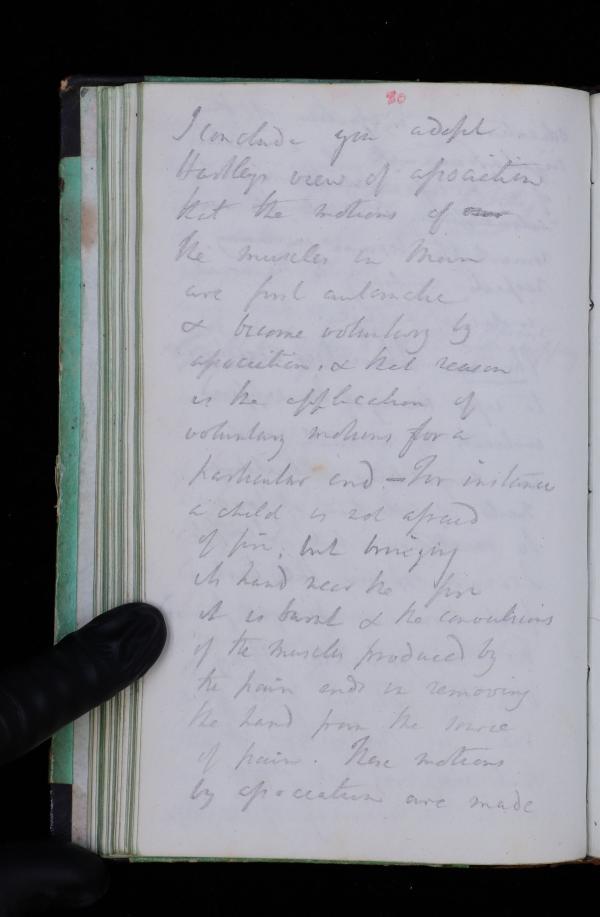 80
I conclude you adopt
Hartleys view of association
that the motions of
the muscles in Man
are first automatic
& become voluntary by
association, & that reason
is the application of
voluntary motions for a
particular end — For instance
a child is not afraid
of fire, but bringing
its hand near the fire
it is burnt & the convulsions
of the muscles produced by
the pain ends in removing
the hand from the source
of pain. These motions
by association are made